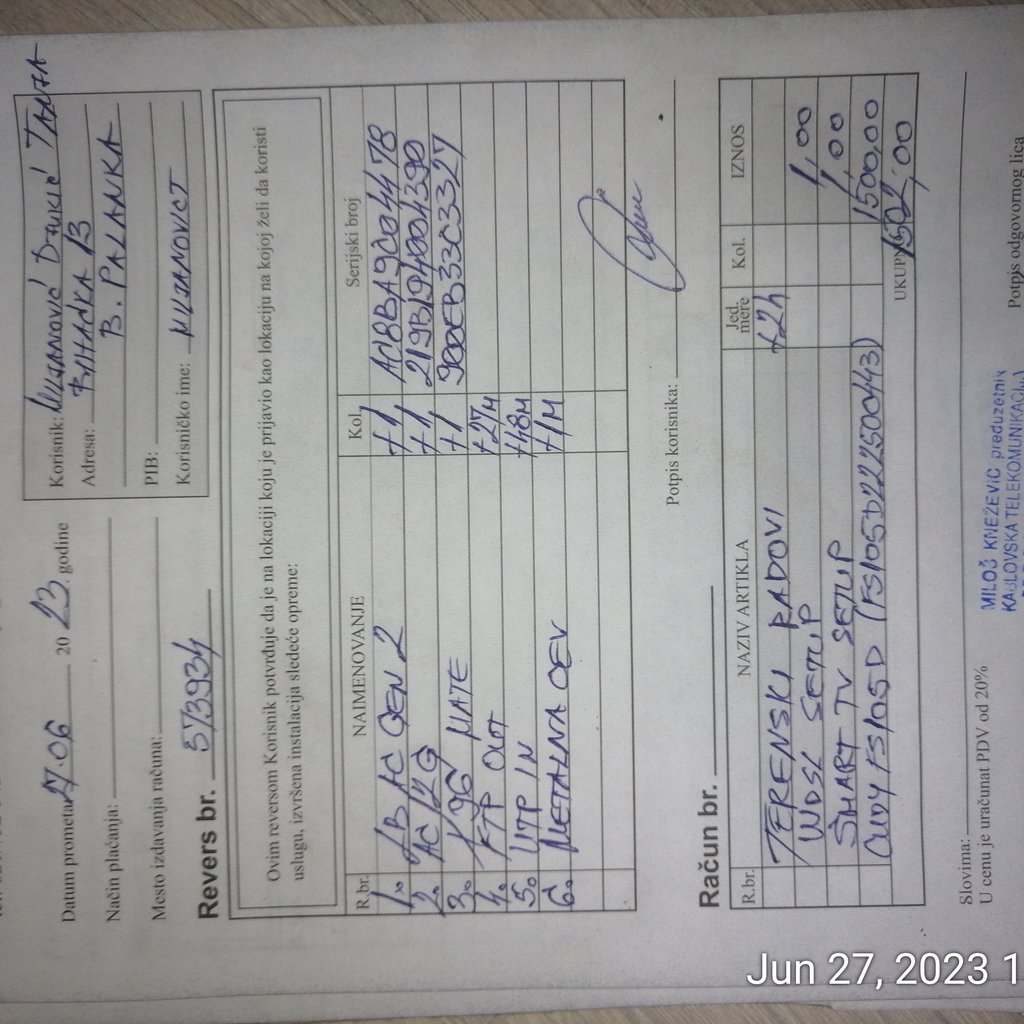 Datum prometa 27.06 20 23. godine
Način plaćanja:
Mesto izdavanja računa:
Korisnik: MUJANOVIĆ DJUKIĆ TANJA
Adresa: 13
B. PALANKA
PIB:
Korisničko ime: MUJANOVICT
Revers br. 573934
Ovim reversom Korisnik potvrđuje da je na lokaciji koju je prijavio kao lokaciju na kojoj želi da koristi
uslugu, izvršena instalacija sledeće opreme:
R.br. NAIMENOVANJE Kol. Serijski broj
1. LB AC GEN 2 +1
2. +1 219B194004390
3. +1 9000EB33C3327
4. FTP OUT +27M
5. UTP IN +48M
6. METALNA CEV +1M
Potpis korisnika:
Račun br.
R.br. NAZIV ARTIKLA Jed. mere Kol. IZNOS
TERENSKI RADOVI +2h
WDSL SETUP 1,00
SMART TV SETUP 1,00
CUDY FS105D (FS105D222500443) 1500,00
UKUPNO 1502,00
Slovima:
U cenu je uračunat PDV od 20%
MILOŠ KNEŽEVIĆ preduzetnik
KABLOVSKA TELEKOMUNIKACIJA
Potpis odgovornog lica
Jun 27, 2023 1